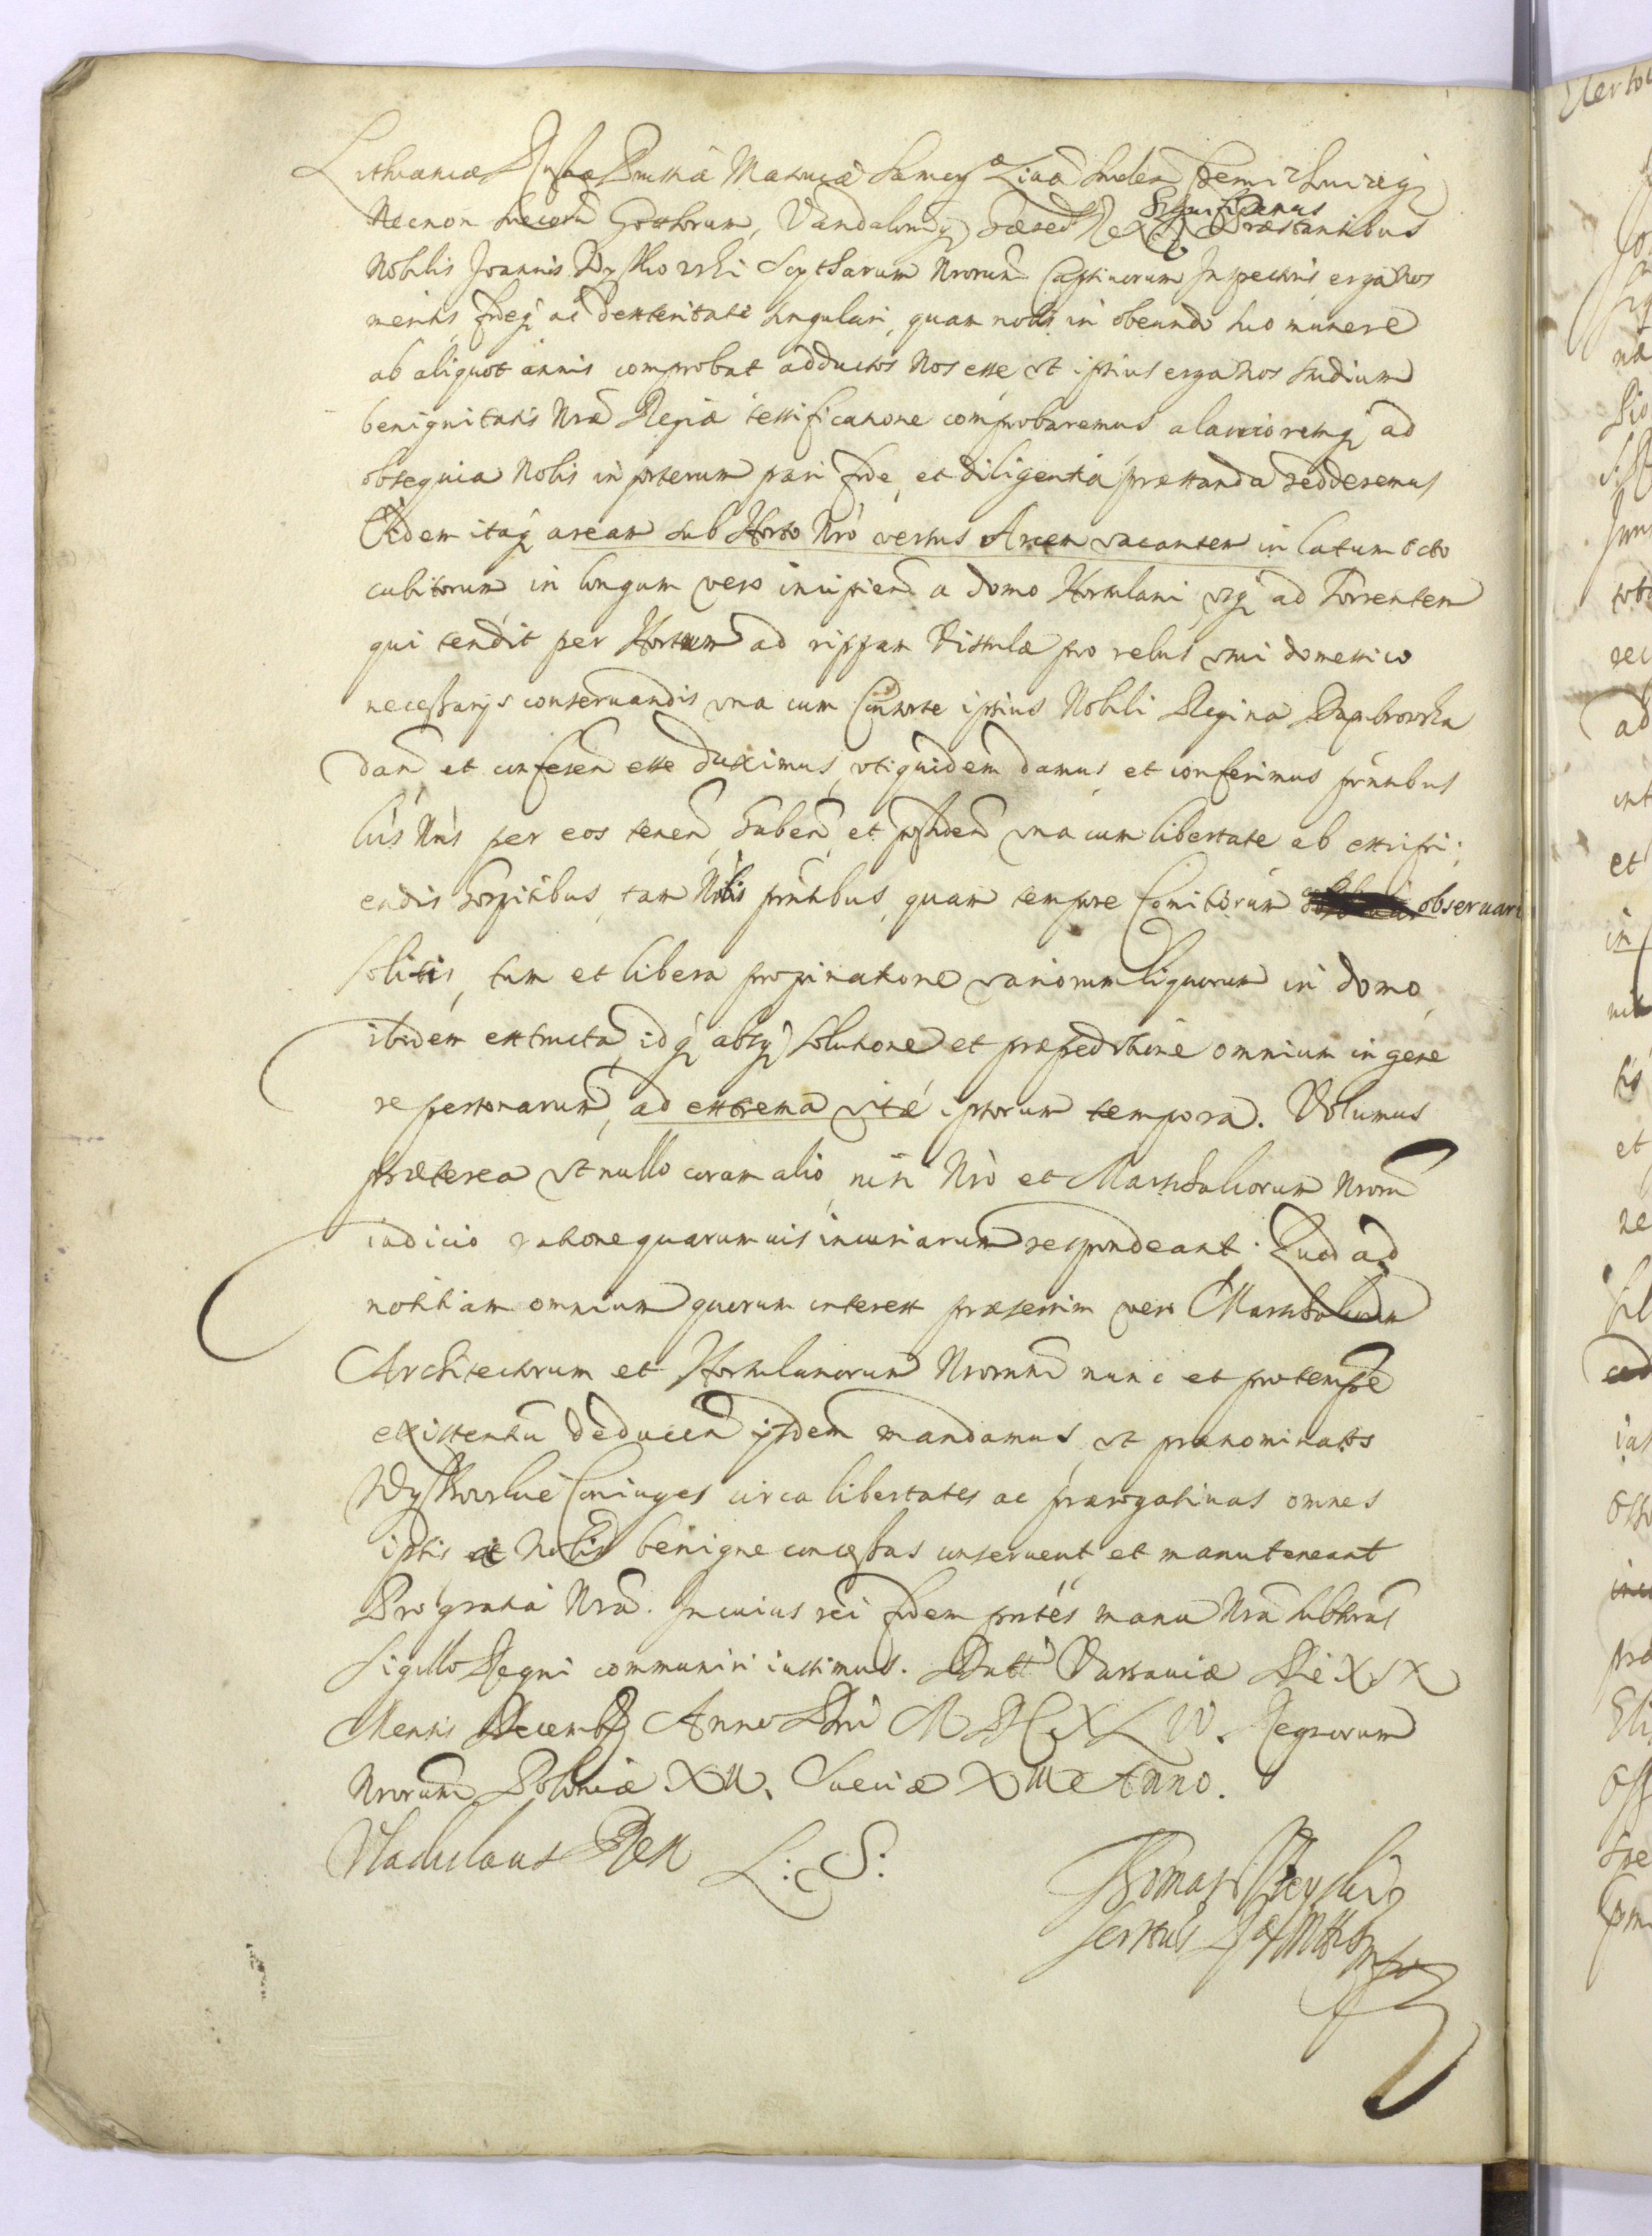 Lithuaniæ Russiæ Prussiæ Masoviæ Samog Livo Smolen Czernihouięq
Necnon Suecorū Gotthorum, Vandalorumq hæred Rex Significamus Præstantibus
Nobilis Joannis Wysskowski Scytharum Nrorum Captiuorum Inspectoris erga Nos
meritis, fideq ac dexteritate singulari, quam nobis in obeundo suo munere
ab aliquot annis comprobat adductos Nos esse, vt ipsius erga Nos studium
benignitatis Nræ Regiæ testificatione comprobaremus alacrioremq ad
obsequia Nobis in posterum pari fide, et diligentia præstanda redderemus
Eidem itaq aream sub Horto Nrō versus Arcem vacantem in latum octo
cubitorum in longum vero incipiend a domo Hortulani vsq ad Torrentem
qui tendit per Hortum ad rippam Vistulæ pro rebus vsui domestico
necessarijs conseruandis vna cum Consorte ipsius Nobili Regina Dąmbrowska
dand et conferend esse duximus, vtiquidem damus, et conferimus prntibus
lris Nris per eos tenend, habend, et possidend vna cum libertate ab excipi;
endis hospitibus, tam Nobis prntibus, quam tempore Comitiorum obseruari
solitis, tum et libera propinatione variorum liquorum in domo,
ibidem extructa, idq absq solutione et præpeditione omnium in gene
re personarum, ad extrema vitæ ipsorum tempora. Volumus
præterea vt nullo coram alio, nisi Nrò et Marschalcorum Nrorū
iudicio ratione quarumuis iniuriarum respondeant. Quod ad
notitiam omnium quorum interest præsertim vero Marschalcorum
Architectorum et Hortulanorum Nrorum nunc et pro tempore
existentiū deducend ijsdem mandamus, vt prænominatos
Wysskowskie Coniuges circa libertates ac prærogatiuas omnes
ipsis a Nobis benigne concessas conseruent, et manuteneant
Pro gratia Nrā. In cuius rei fidem prntes manu Nrā subscrās
Sigillo Regni communiri iussimus. Datt Varsauiæ Die XIX
Mensis Decembr Anno Dni MDCXLIV. Regnorum
Nrorum Poloniæ XII. Sueciæ XIII Anno.
Vladislaus Rex L: S:
Thomas